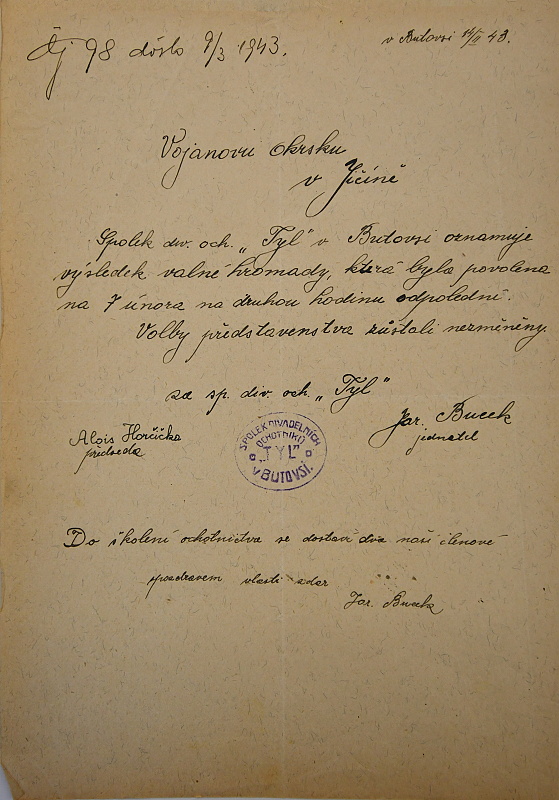 Čj 98 došlo 9/3 1943.
v Butovsi 14/II 43.
Vojanovu okrsku
v Jičíně
Spolek div. och. „Tyl" v Butovsi oznamuje
výsledek valné hromady, která byla povolena
na 7 února na druhou hodinu odpolední.
Volby představenstva zůstali nezměněny.
za sp. div. och. „Tyl"
Jar. Bucek
jednatel
Alois Horčička
předseda
SPOLEK DIVADELNÍCH
OCHOTNÍKŮ
„TYL"
v BUTOVSI.
Do školení ochotnictva se dostaví dva naši členové
spozdravem vlasti zdar
Jar. Bucek